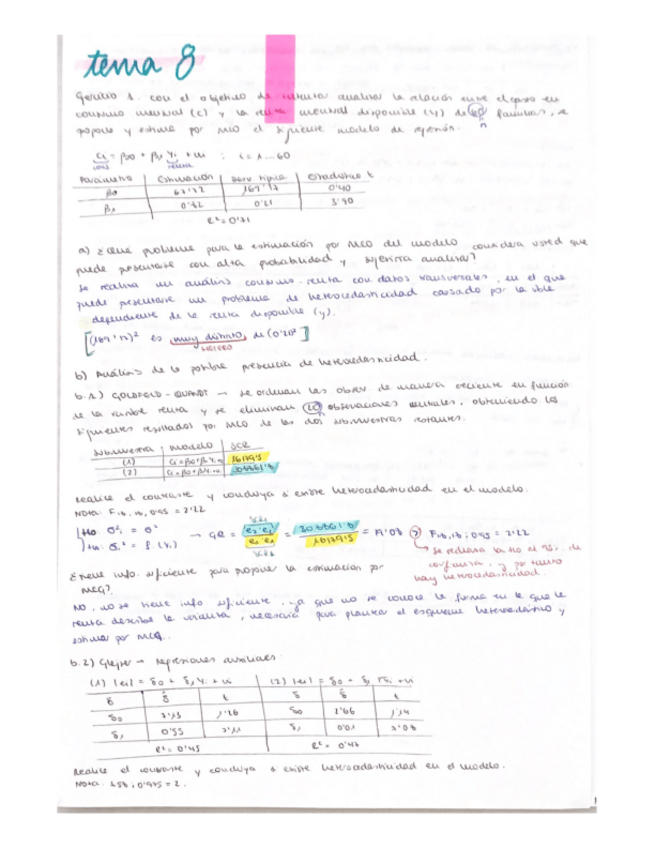 tema 8
Ejercicio 1. con el objetivo de intentar analizar la relación entre el gasto en
consumo mensual (C) y la renta mensual disponible (Y) de 60 familias, se
propone y estima por MCO el siguiente modelo de regresión.
Ci = β0 + β1 Yi + ui ; i = 1...60
cons renta n
Parámetro Estimación Desv típica Estadístico t
β0 67'72 169'17 0'40
β1 0'82 0'21 3'90
R² = 0'71
a) ¿Qué problema para la estimación por MCO del modelo considera usted que
puede presentarse con alta probabilidad y debería analizar?
Se realiza un análisis consumo-renta con datos transversales, en el que
puede presentarse un problema de heterocedasticidad causado por la vble
dependiente de la renta disponible (y).
[(169'17)² es muy distinto de (0'20²)]
HETERO
b) Análisis de la posible presencia de heterocedasticidad.
b.1) GOLDFELD-QUANDT → se ordenan las observ de manera creciente en función
de la variable renta y se eliminan observaciones centrales, obteniendo los
siguientes resultados por MCO de las dos submuestras restantes.
Submuestra modelo SCR
(1) Ci = β0 + β1 Yi + ui
(2) Ci = β0 + β1 Yi + ui
Realice el contraste y concluya si existe heterocedasticidad en el modelo.
NOTA: F18,18,0'95 = 2'22
H0: σ²i = σ²
H1: σ²i = f(Yi) → GQ = e2'e2 / e1'e1 = F18,18;0'95 = 2'22
→ se rechaza la H0 al 95% de
confianza, y por tanto
hay heterocedasticidad.
¿Tiene info. suficiente para proponer la estimación por
MCG?
No, no se tiene info suficiente, ya que no se conoce la forma en la que la
renta describe la varianza, necesaria para plantear el esquema heterocedástico y
estimar por MCG.
b.2) Glejser → regresiones auxiliares:
(1) |ei| = δ0 + δ1 Yi + vi (2) |ei| = δ0 + δ1 √Yi + vi
δ δ̂ t δ δ̂ t
δ0 1'26 δ0 2'66 1'14
δ1 0'55 δ1 0'01
R² = 0'45 R² = 0'47
Realice el contraste y concluya si existe heterocedasticidad en el modelo.
Nota: t58;0'975 = 2.